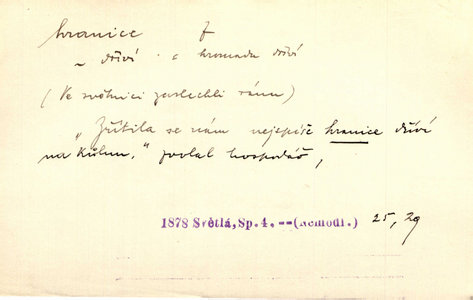 hranice f
~ dříví : hromada dříví
(Ve světnici zaslechli ránu)
„Zřítila se nám nejspíše hranice dříví
na kůlnu," povlal hospodář,
1878 Světlá, Sp. 4. --(Nemodl.) 25, 29